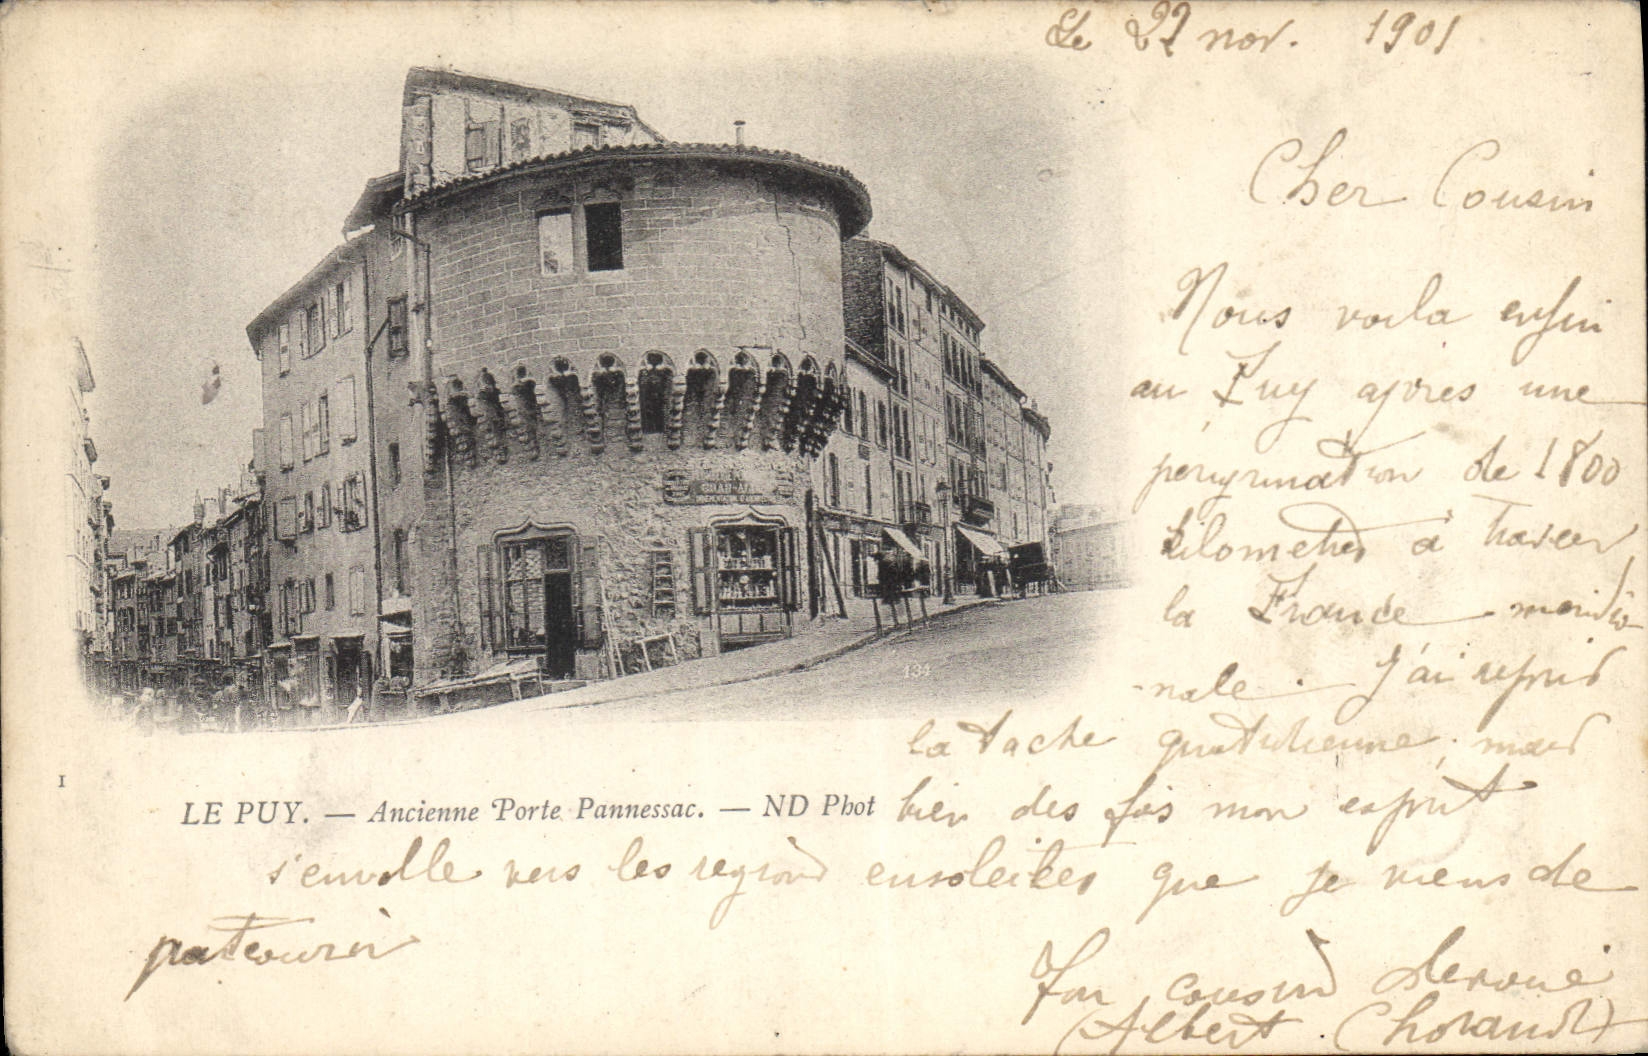 Le 22 nov. 1901
Cher Cousin
Nous voila enfin
au Puy apres une
pérégrination de 1800
kilometres à travers
la France méridio-
-nale. J'ai repris
la tache quotidienne, mais
1
LE PUY. — Ancienne Porte Pannessac. — ND Phot
bien des fois mon esprit
s'envolle vers les régions ensoleilées que je viens de
parcourir
Ton cousin dévoué
(Albert
134